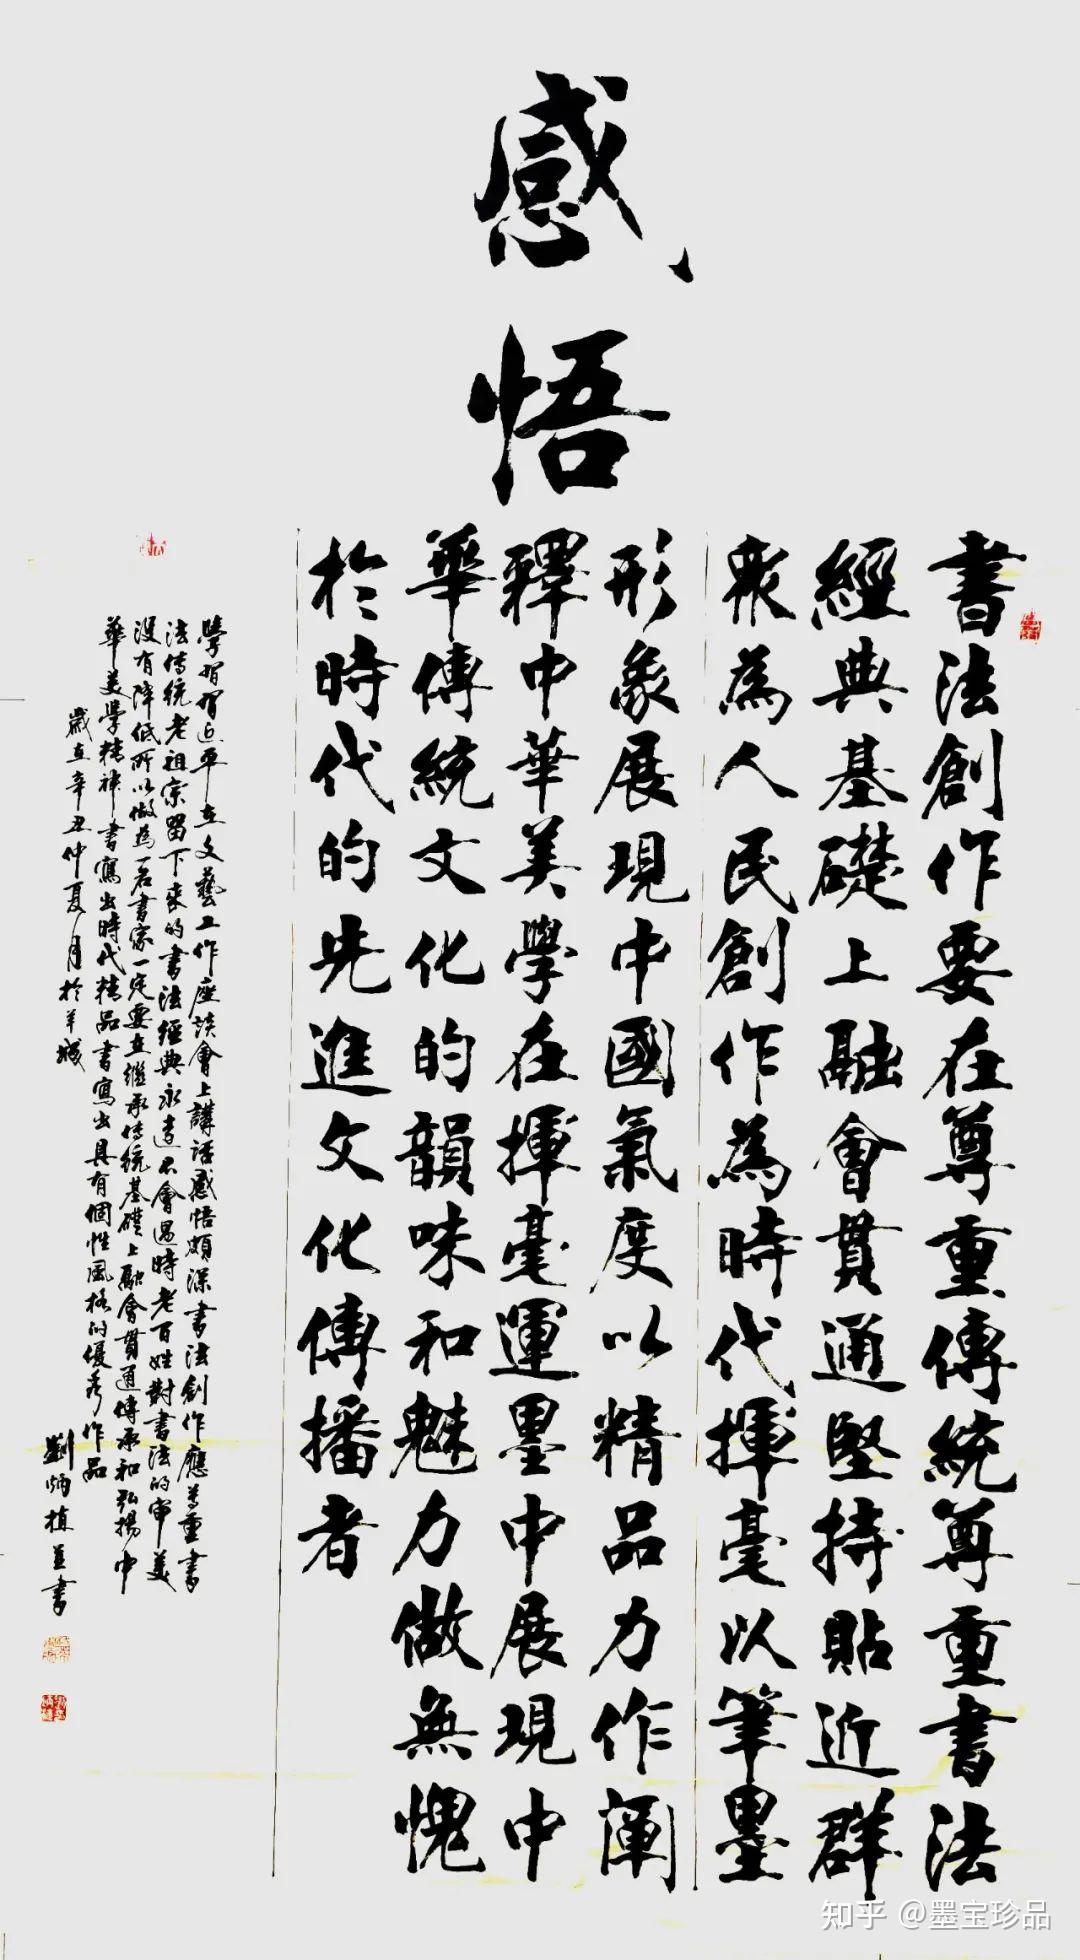 感悟
書法創作要在尊重傳統尊重書法
經典基礎上融會貫通堅持貼近群
衆為人民創作為時代揮毫以筆墨
形象展現中國氣度以精品力作阐
釋中華美學在揮毫運墨中展現中
華傳統文化的韻味和魅力做無愧
於時代的先進文化傳播者
學習習近平在文藝工作座談會上講話感悟頗深書法創作應尊重書
法傳統老祖宗留下來的書法經典永遠不會過時老百姓對書法的审美
沒有降低所以做為一名書家一定要在繼承傳統基礎上融會貫通傳承和弘揚中
華美學精神書寫出時代精品書寫出具有個性風格的優秀作品
歲在辛丑仲夏月於羊城
劉炳植並書
知乎 @墨宝珍品